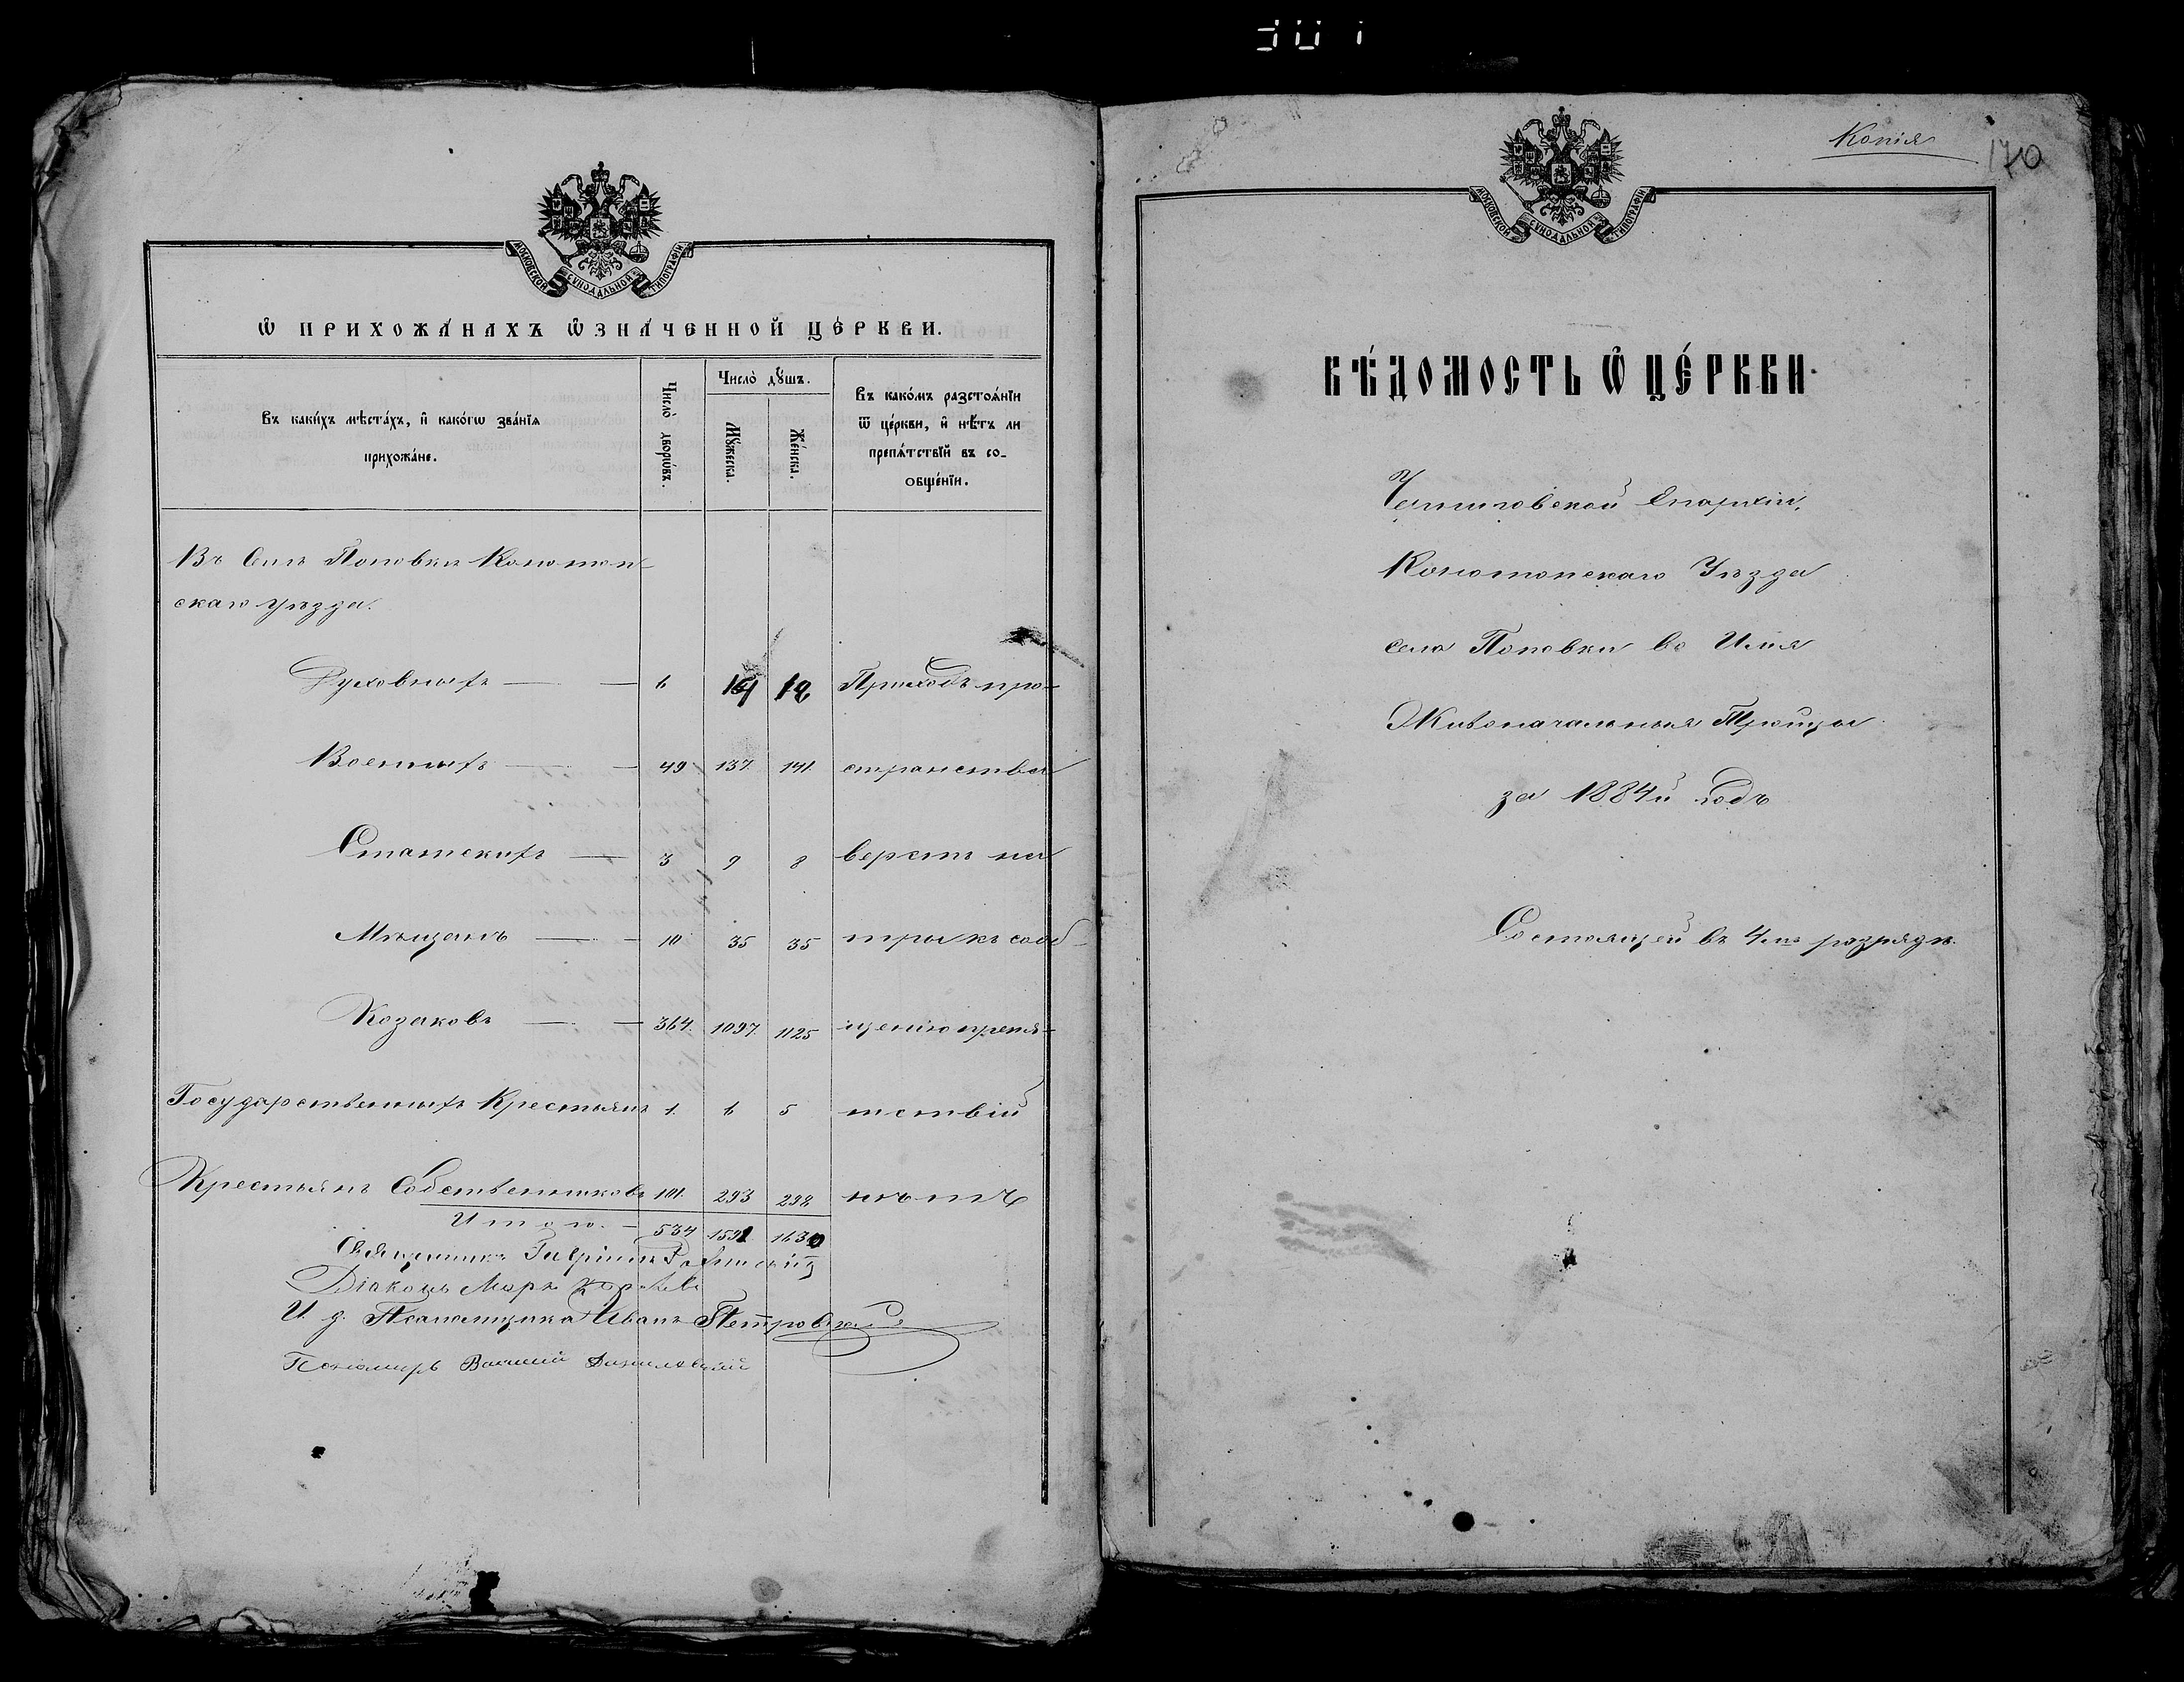 МОСКОВСКОЙ СУНОДАЛЬНОЙ ТИПОГРАФІИ
Ѡ ПРИХОЖА́НАХЪ Ѡ҆ЗНА́ЧЕННОЙ ЦЕ́РКВИ.
Въ каки́хъ мѣста́хъ, и҆ како́гѡ зва́нїѧ
прихожа́не.
Число̀ дворѡ́въ.
Число̀ дꙋ́шъ.
Мꙋ́жеска.
Же́нска.
Въ како́мъ разстоѧ́нїи
ѿ це́ркви, и҆ нѣ́тъ ли
препѧ́тствїй въ со-
ѻбще́нїи.
Въ Селѣ Поповки Конотоп-
скаго уѣзда.
Духовныхъ — 6 Приходъ про-
Военныхъ — 49 137. 141. странства
Статскихъ — 3 9 8 верстъ на
Мѣщанъ — 10 35 35 три къ сооб-
Козаковъ — 364. 1097. 1125 щенію препя-
Государственныхъ Крестьянъ 1. 6 5 тствій
Крестьянъ Собственниковъ 101. 293 298 нѣтъ
Итого. — 534 1591 1630
Священникъ Гавріилъ
Діаконъ Маркъ
И. д. Псаломщика Иванъ Петровскій
Пономарь Василій Данилевскій
Копія
170
МОСКОВСКОЙ СУНОДАЛЬНОЙ ТИПОГРАФІИ
ВѢ́ДОМОСТЬ Ѡ҆ ЦЕ́РКВИ.
Черниговской Епархіи,
Конотопскаго Уѣзда
села Поповки во Имя
Живоначальныя Тройцы
за 1884й годъ
Состоящей въ 4мъ разрядѣ.